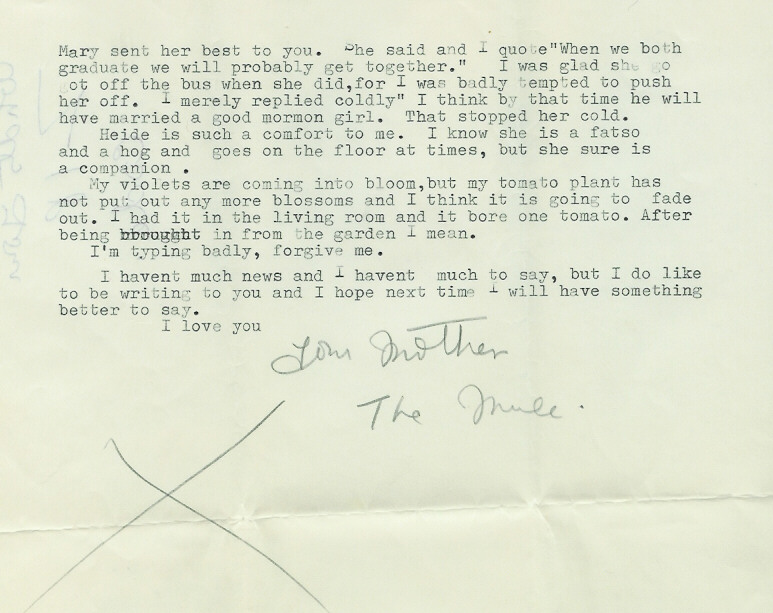 Mary sent her best to you.  She said and I quote"When we both
graduate we will probably get together."   I was glad she go
ot off the bus when she did,for I was badly tempted to push
her off.  I merely replied coldly" I think by that time he will
have married a good mormon girl.  That stopped her cold.
Heide is such a comfort to me.  I know she is a fatso
and a hog and  goes on the floor at times, but she sure is
a companion .
My violets are coming into bloom,but my tomato plant has
not put out any more blossoms and I think it is going to  fade
out. I had it in the living room and it bore one tomato. After
being bbroughht in from the garden I mean.
I'm typing badly, forgive me.
I havent much news and I havent  much to say, but I do like
to be writing to you and I hope next time I will have something
better to say.
I love you
Your Mother
The Mule.